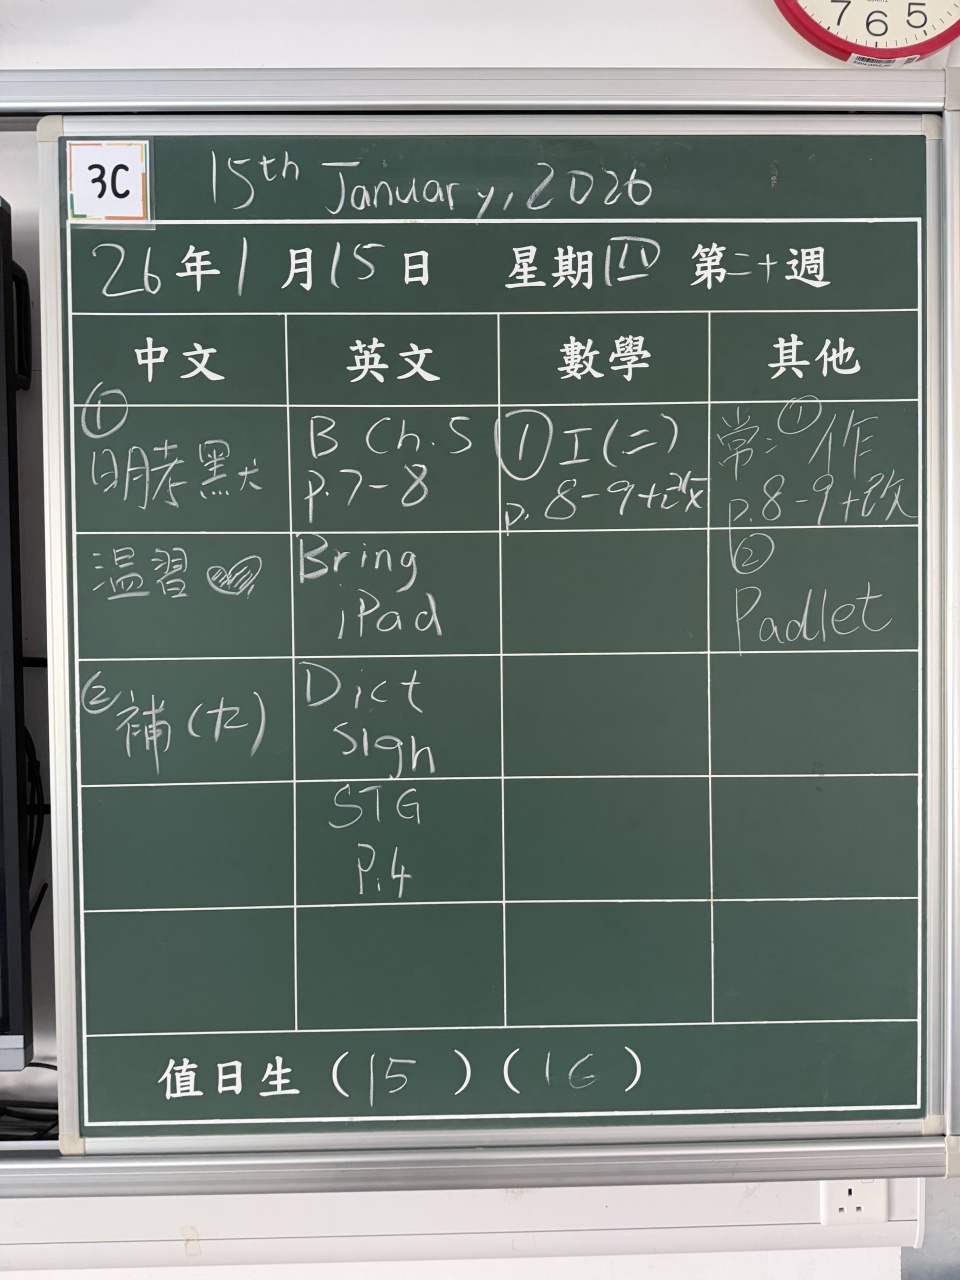 7 6 5
3C
15th January, 2026
26年1月15日 星期四 第二十週
中文 英文 數學 其他
①
明孝默
温習
②補(九)
B Ch.5
p.7-8
Bring
iPad
Dict
sign
STG
P.4
①工(二)
p.8-9+改
常：①作
p.8-9+改
②
Padlet
值日生(15)(16)